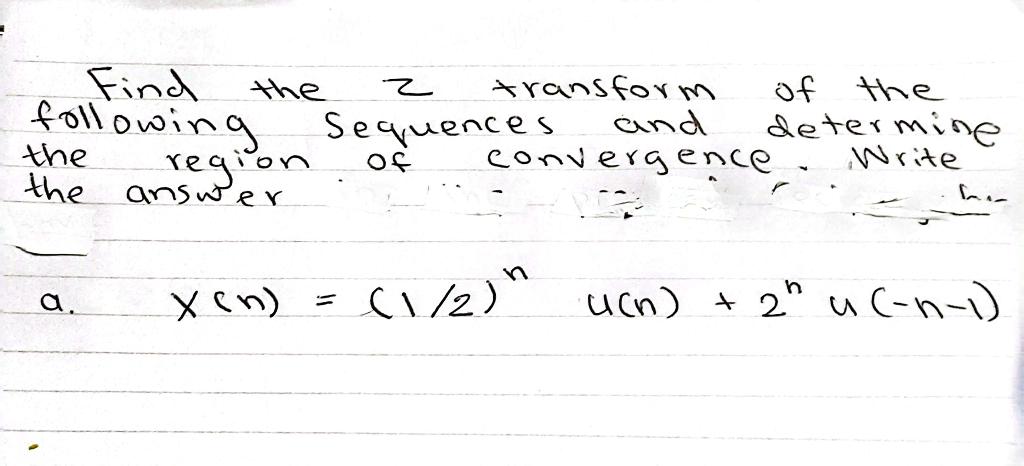 Find the z transform of the
following sequences and determine
the region of convergence. Write
the answer
a. x(n) = (1/2)^n u(n) + 2^n u(-n-1)